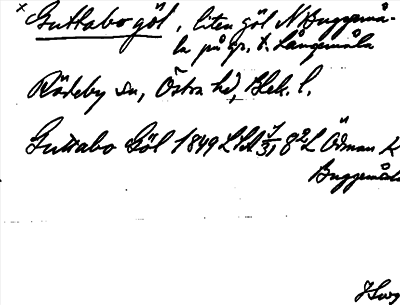 x Guttabo göl, liten göl N Buggemå-
la på gr. t. Långemåla
Rödeby sn, Östra hd, Blek. l.
Guttabo Göl 1849 LSA 82 Ödman K
Buggemåla